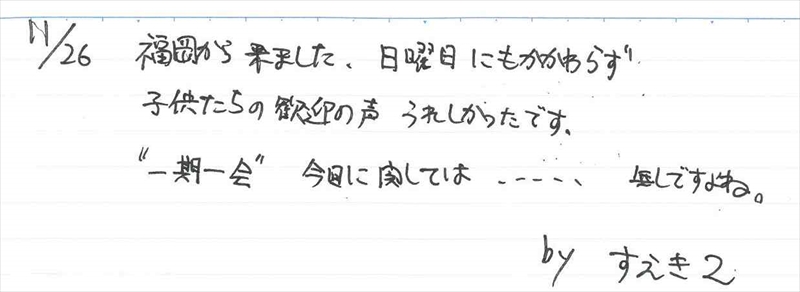 11/26 福岡から来ました、日曜日にもかかわらず
子供たちの歓迎の声 うれしかったです。
"一期一会" 今日に関しては ・・・・・、 無しですよね。
by すえき2